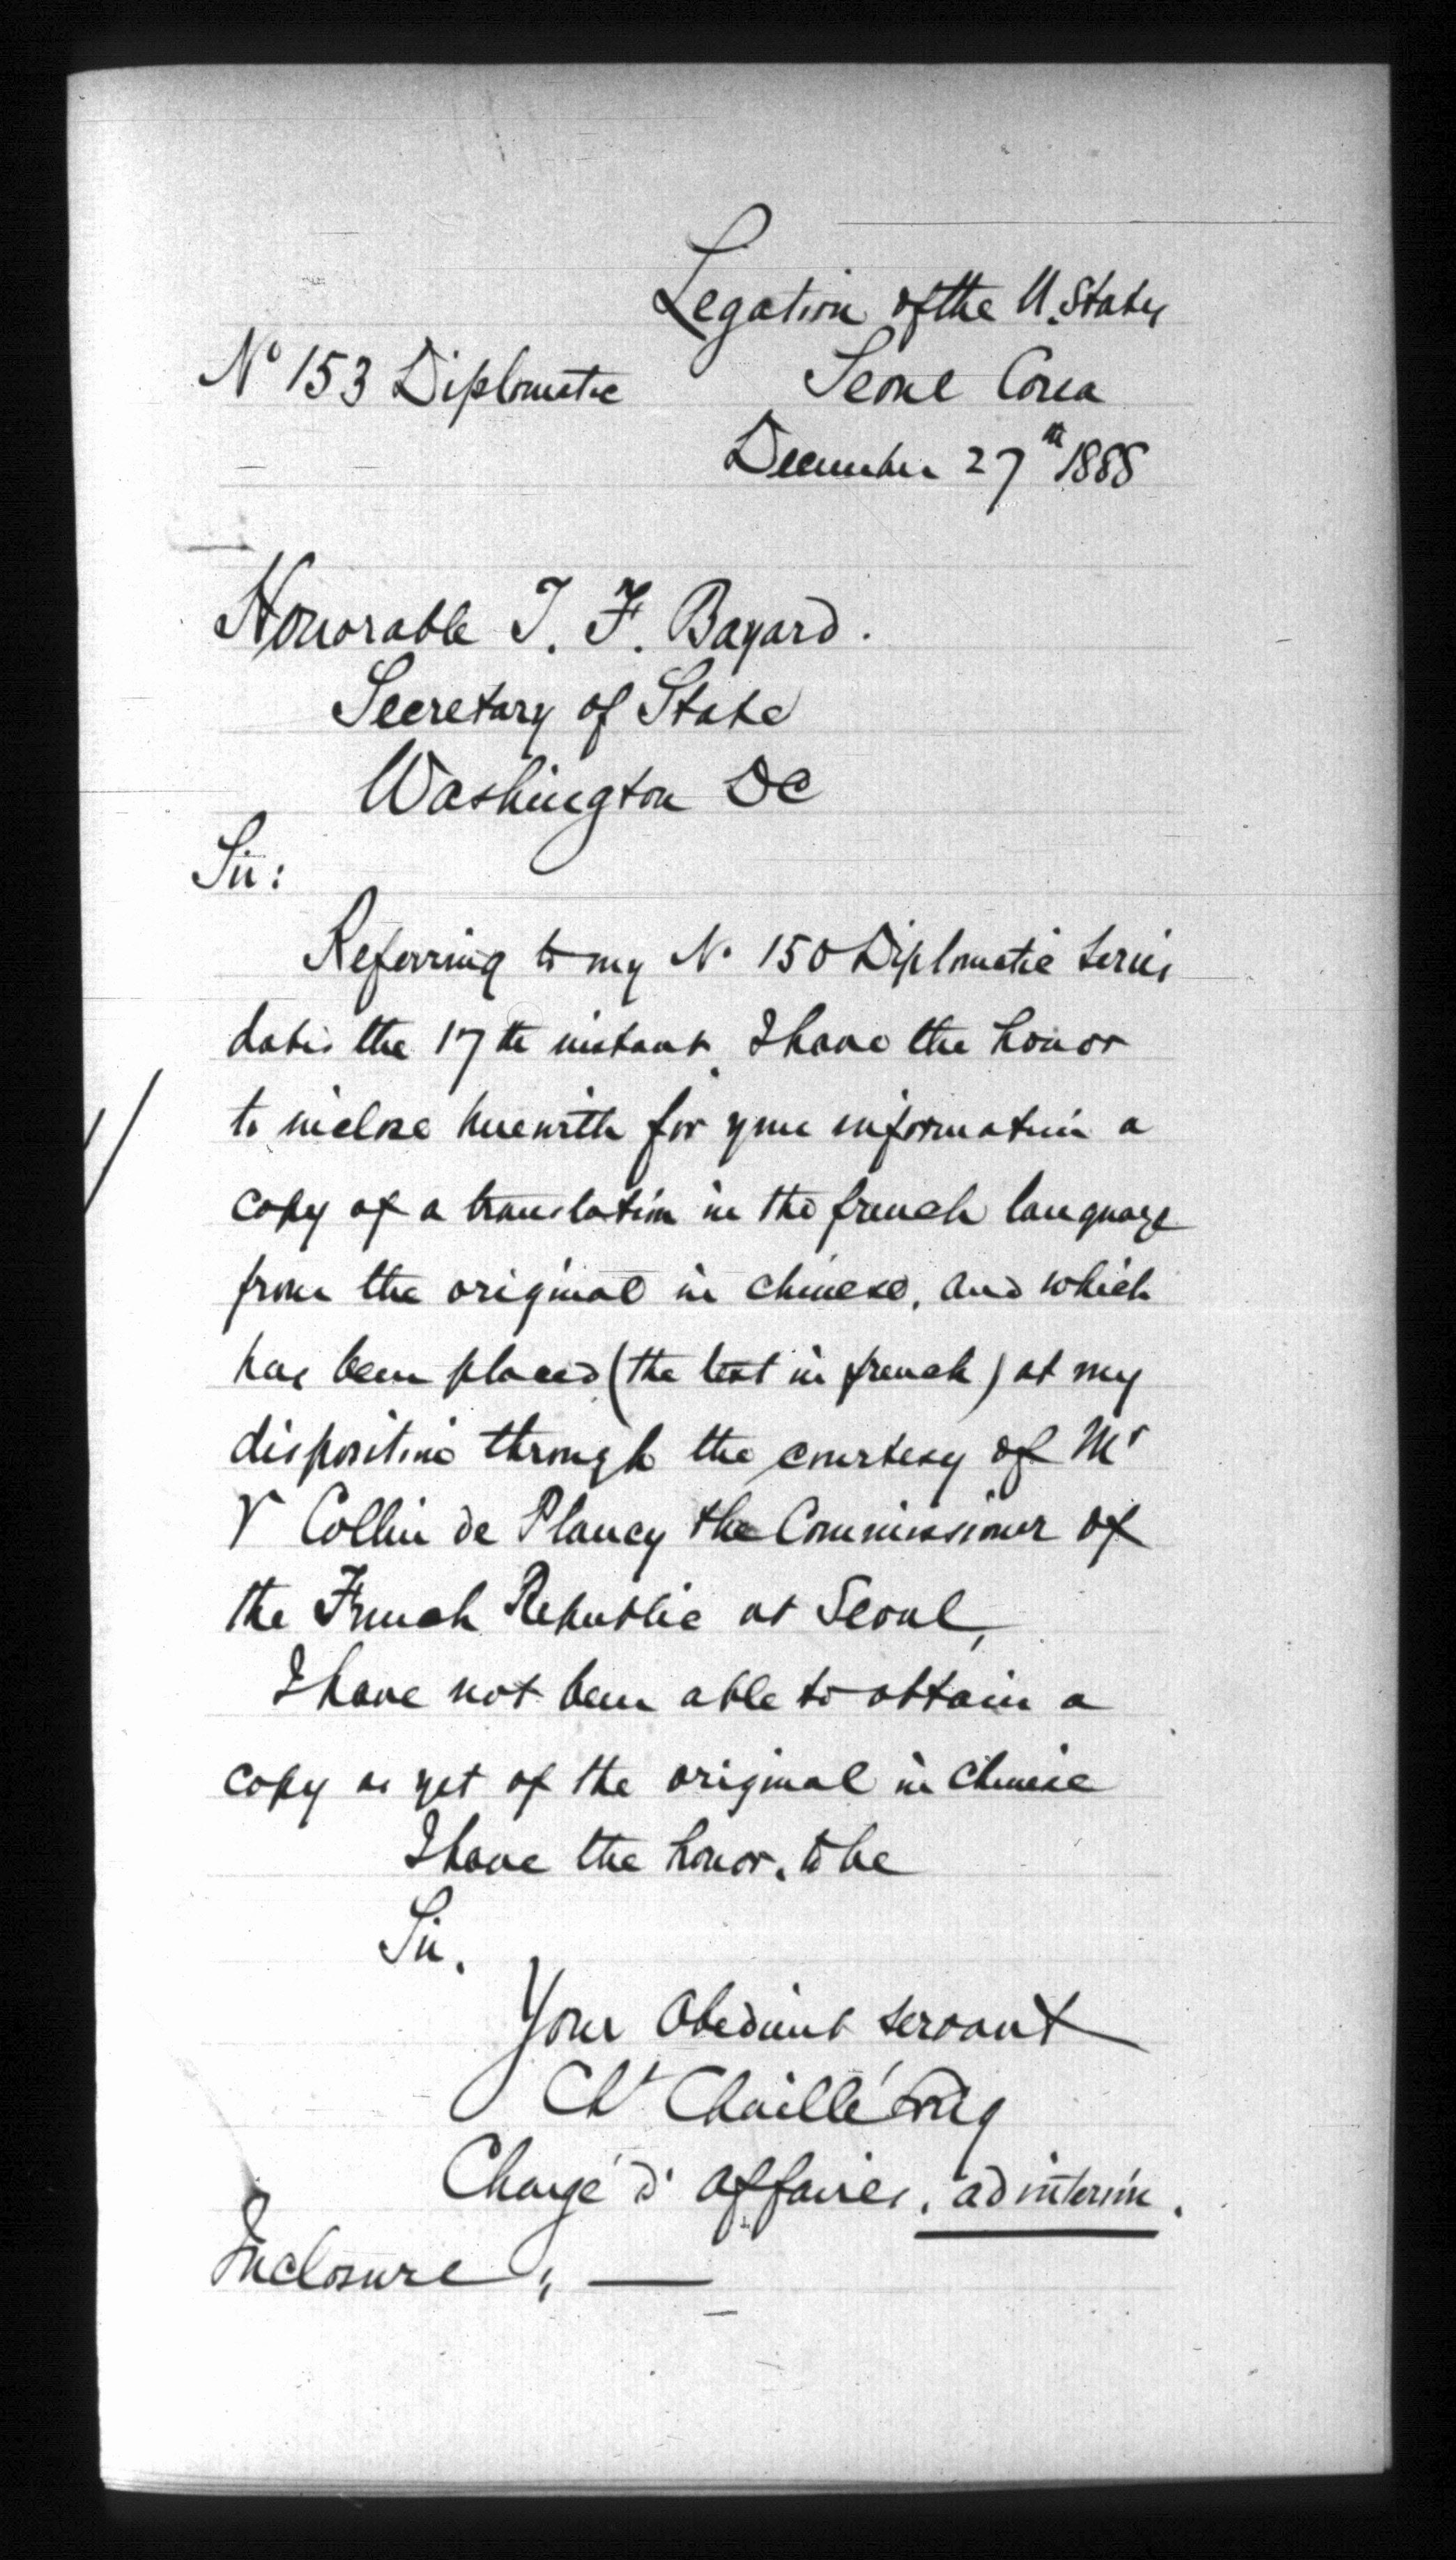 Legation of the U. States
No 153 Diplomatic Seoul Corea
December 27th 1888
Honorable T. F. Bayard.
Secretary of State
Washington DC
Sir:
Referring to my No 150 Diplomatic Series
date the 17th instant, I have the honor
to inclose herewith for your information a
copy of a translation in the french language
from the original in chinese, and which
has been placed (the text in french) at my
disposition through the courtesy of Mr
V Collin de Plancy the Commissioner of
the French Republic at Seoul,
I have not been able to obtain a
copy as yet of the original in Chinese
I have the honor, to be
Sir,
Your Obedient servant
Ch. Chaillé Long
Chargé d'affaires, ad interim.
Inclosure, —